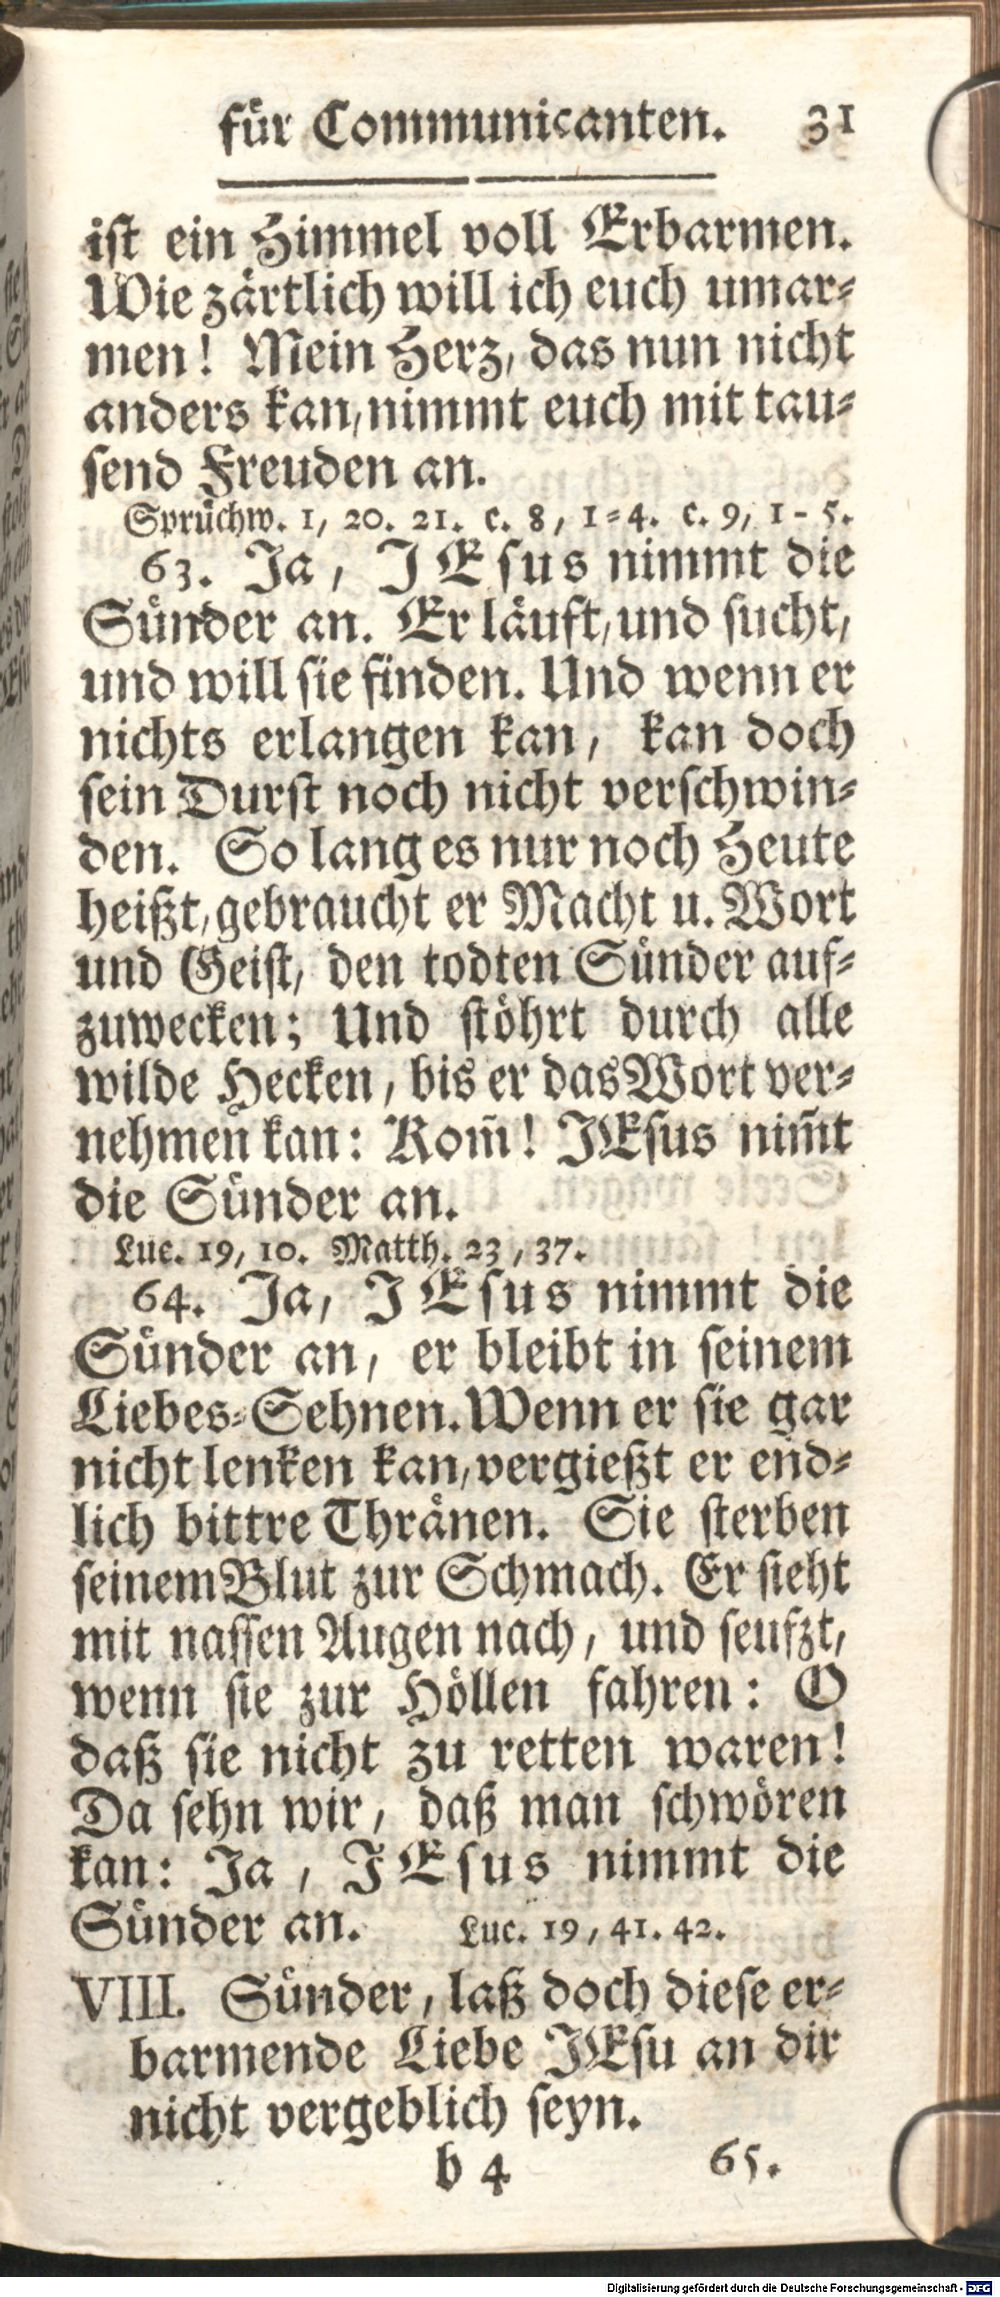 für Communicanten. 31
ist ein Himmel voll Erbarmen.
Wie zärtlich will ich euch umar-
men! Mein Herz, das nun nicht
anders kan, nimmt euch mit tau-
send Freuden an.
Sprüchw. 1, 20. 21. c. 8, 1-4. c. 9, 1-5.
63. Ja, JEsus nimmt die
Sünder an. Er läuft, und sucht,
und will sie finden. Und wenn er
nichts erlangen kan, kan doch
sein Durst noch nicht verschwin-
den. So lang es nur noch Heute
heißt, gebraucht er Macht u. Wort
und Geist, den todten Sünder auf-
zuwecken; Und stöhrt durch alle
wilde Hecken, bis er das Wort ver-
nehmen kan: Kom̅! JEsus nim̅t
die Sünder an.
Luc. 19, 10. Matth. 23, 37.
64. Ja, JEsus nimmt die
Sünder an, er bleibt in seinem
Liebes-Sehnen. Wenn er sie gar
nicht lenken kan, vergießt er end-
lich bittre Thränen. Sie sterben
seinem Blut zur Schmach. Er sieht
mit nassen Augen nach, und seufzt,
wenn sie zur Höllen fahren: O
daß sie nicht zu retten waren!
Da sehn wir, daß man schwören
kan: Ja, JEsus nimmt die
Sünder an. Luc. 19, 41. 42.
VIII. Sünder, laß doch diese er-
barmende Liebe JEsu an dir
nicht vergeblich seyn.
b 4 65.
Digitalisierung gefördert durch die Deutsche Forschungsgemeinschaft - DFG